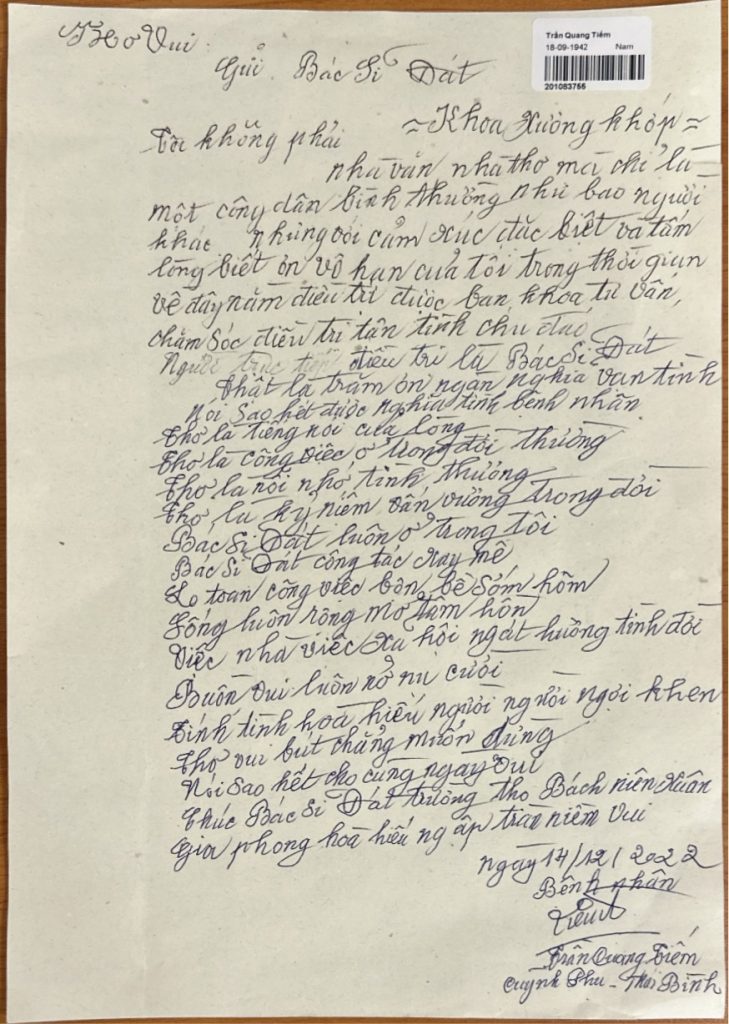 Thơ Vui
Trần Quang Tiềm
18-09-1942 Nam
201083755
Gửi Bác Sĩ Đát
= Khoa Xương khớp =
Tôi không phải
nhà văn nhà thơ mà chỉ là
một công dân bình thường như bao người
khác nhưng với cảm xúc đặc biệt và tấm
lòng biết ơn vô hạn của tôi trong thời gian
về đây nằm điều trị được ban khoa tư vấn,
chăm sóc điều trị tận tình chu đáo
Người trực tiếp điều trị là Bác Sĩ Đát
thật là trăm ơn ngàn nghĩa vạn tình
Nói sao hết được nghĩa tình bệnh nhân
Thơ là tiếng nói của lòng
Thơ là công việc ở trong đời thường
Thơ là nỗi nhớ tình thương
Thơ là kỷ niệm vấn vương trong đời
Bác Sĩ Đát luôn ở trong tôi
Bác Sĩ Đát công tác say mê
Lo toan công việc bộn bề sớm hôm
Sống luôn rộng mở tâm hồn
Việc nhà việc xã hội ngát hương tình đời
Buồn vui luôn nở nụ cười
Tính tình hoà hiếu người người ngợi khen
Thơ vui bút chẳng muốn dừng
Nói sao hết cho cùng ngày vui
Chúc Bác Sĩ Đát trường thọ Bách niên Xuân
Gia phong hoà hiếu ng ập tràn niềm vui
ngày 14/12/2022
Bệnh nhân
Trần Quang Tiềm
Quỳnh Phụ - Thái Bình